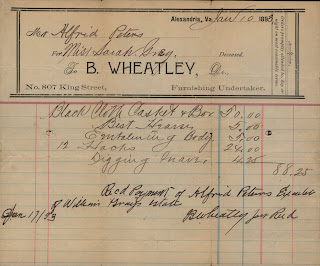 Alexandria, Va. Jan 10 1893
Mr Alfrid Peters
For Miss Sarah Gray, Deceased.
To B. WHEATLEY, Dr.
No. 807 King Street, Furnishing Undertaker.
Black Cloth Casket & Box 50.00
Best Hearse 5.00
Embalming Body 5.00
12 Hacks 24.00
Digging Grave 4.25
88.25
Recd Payment of Alfrid Peters
of William Grays estate
Jan 17/93 B Wheatley